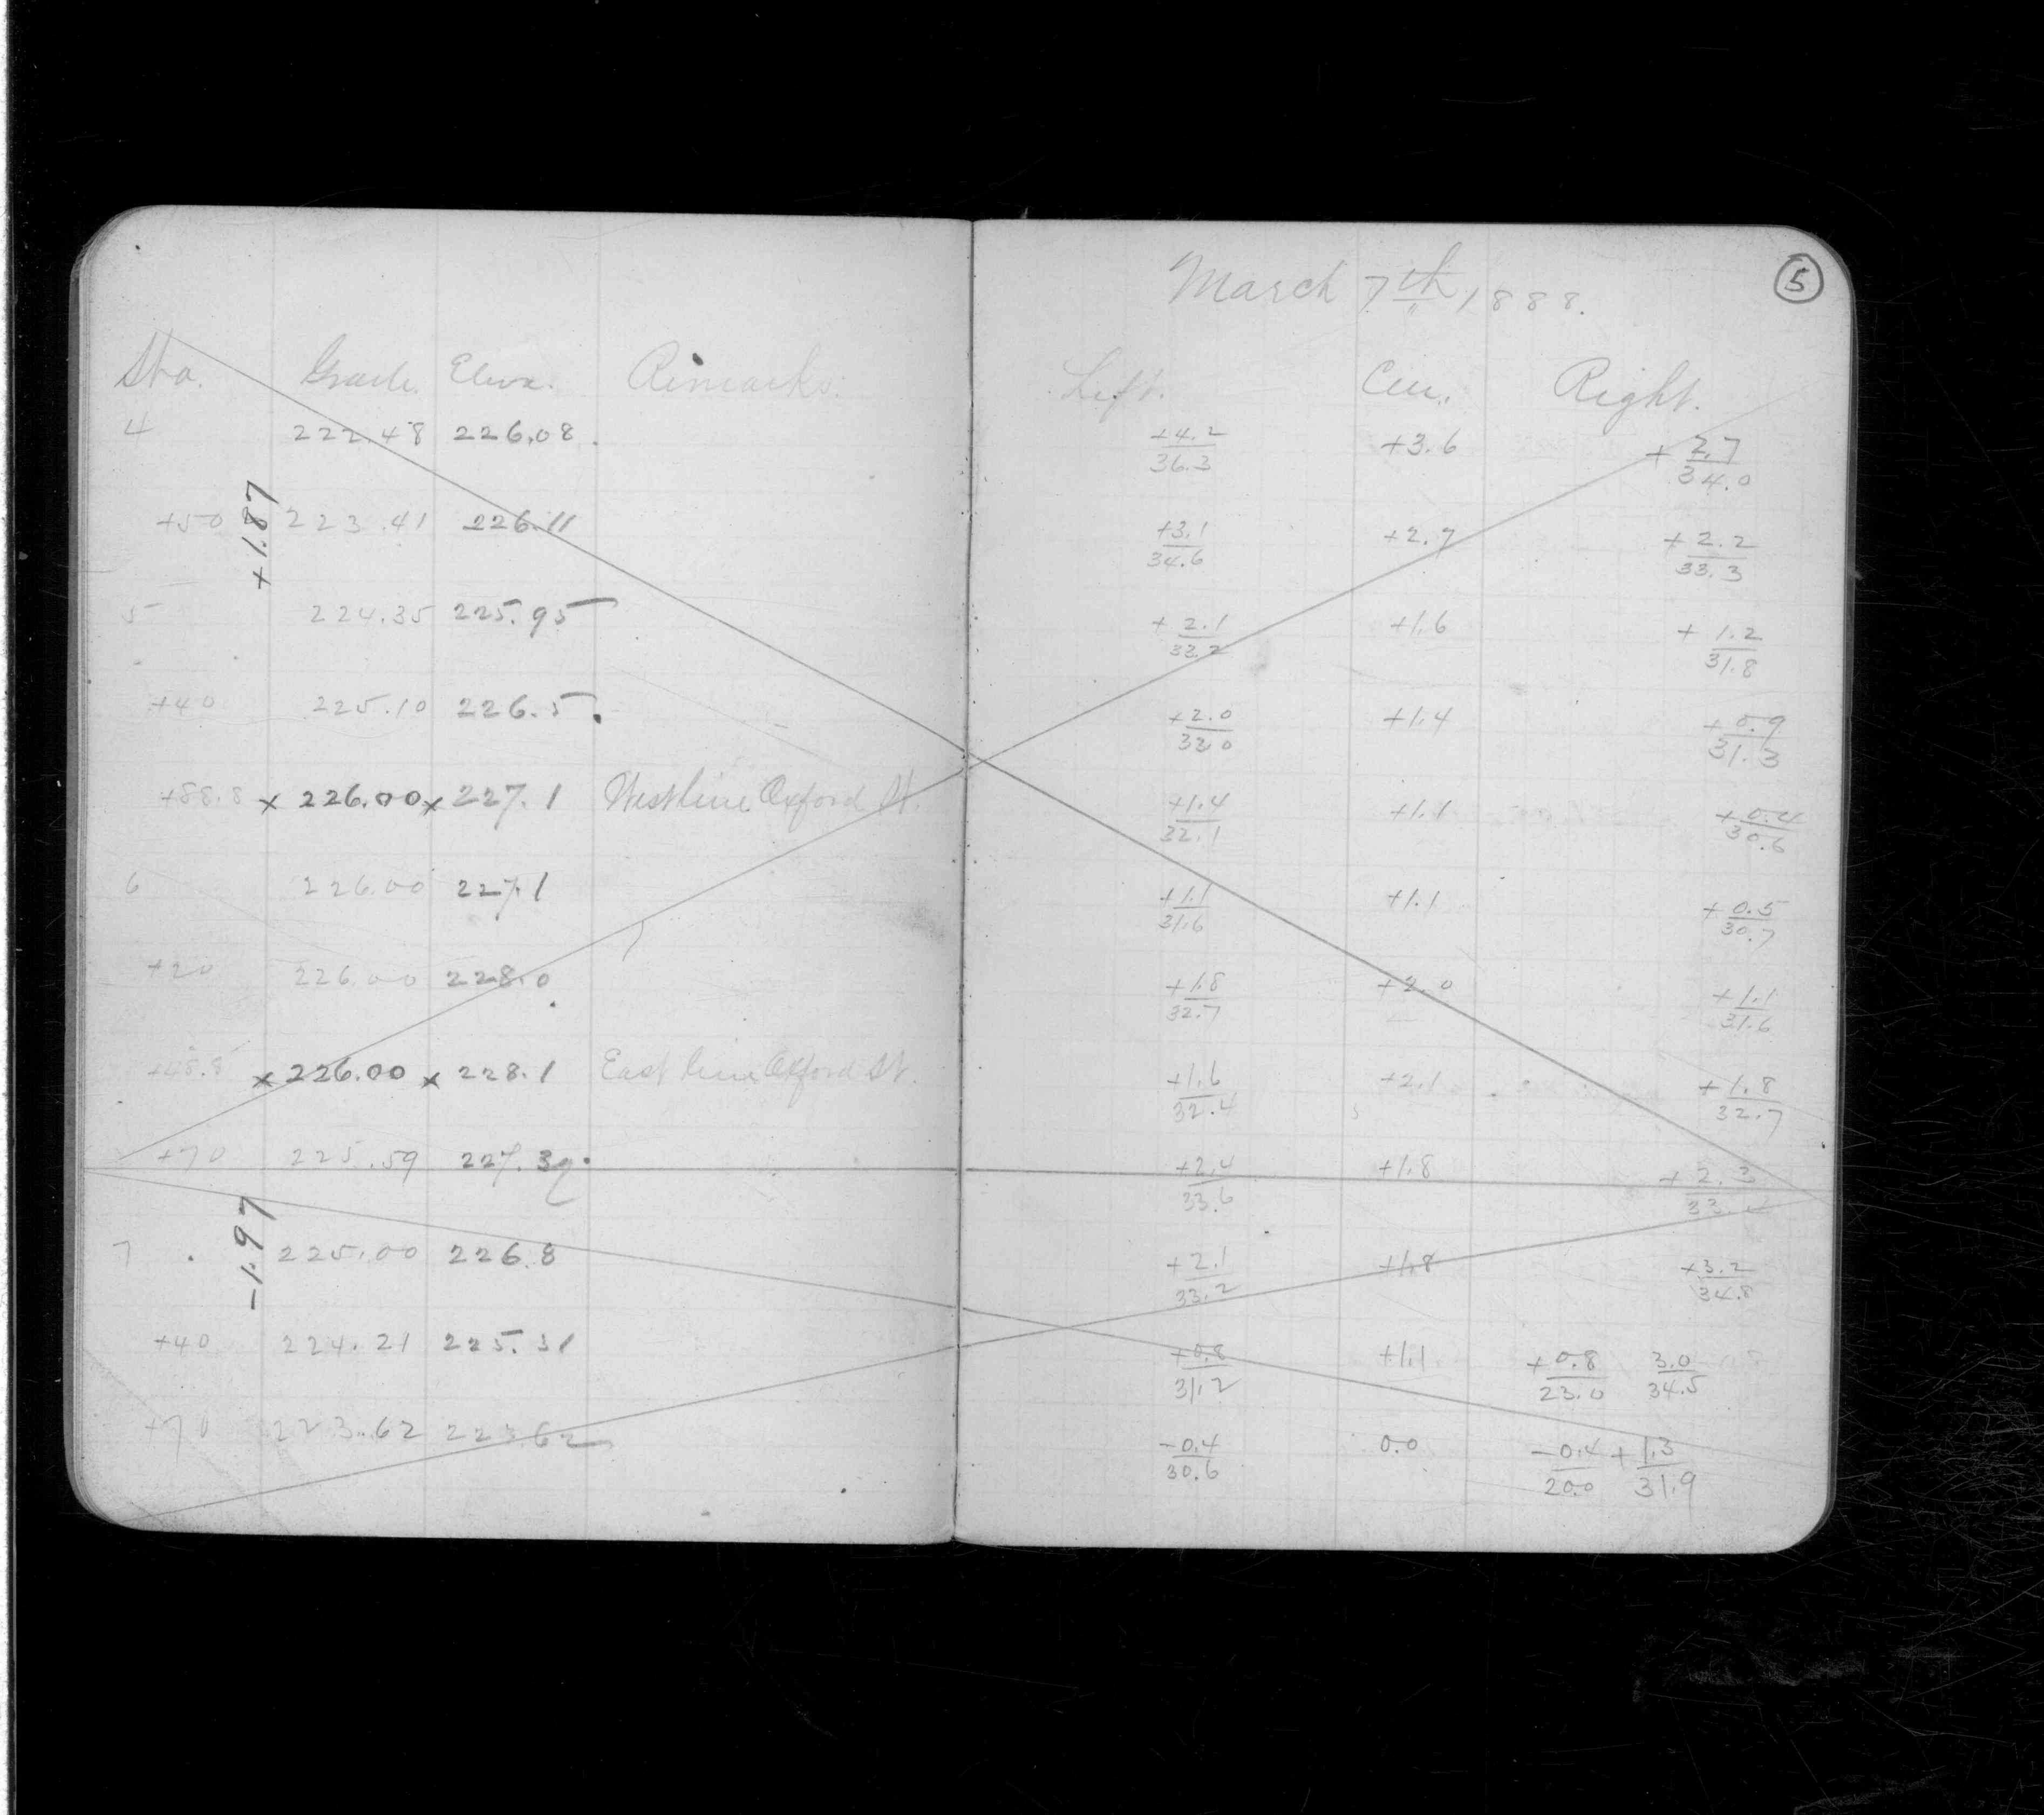 March 7th, 1888.
5
Sta. Grade. Elva. Remarks. Left. Cen. Right.
4 222.48 226.08 +4.2/36.3 +3.6 +2.7/34.0
+1.87
+50 223.41 226.11 +3.1/34.6 +2.7 +2.2/33.3
5 224.35 225.95 +2.1/33.2 +1.6 +1.2/31.8
+40 225.10 226.5 +2.0/33.0 +1.4 +0.9/31.3
+88.8 x 226.00 x 227.1 West line Oxford St. +1.4/32.1 +1.1 +0.4/30.6
6 226.00 227.1 +1.1/31.6 +1.1 +0.5/30.7
+20 226.00 228.0 +1.8/32.7 +2.0 +1.1/31.6
x 226.00 x 228.1 East line Oxford St. +1.6/32.4 +2.1 +1.8/32.7
+70 225.59 227.39 +2.4/33.6 +1.8 +2.3/
-1.97
7 225.00 226.8 +2.1/33.2 +1.8 +3.2/34.8
+40 224.21 225.31 +0.8/31.2 +1.1 +0.8/23.0 3.0/34.5
+70 223.62 223.62 -0.4/30.6 0.0 -0.4/20.0 +1.3/31.9